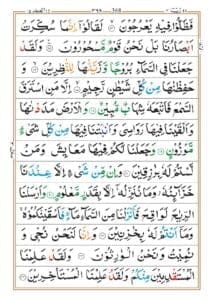 فَظَلُّوْا فِيْهِ يَعْرُجُوْنَ ۙ لَقَالُوْۤا اِنَّمَا سُكِّرَتْ
اَبْصَارُنَا بَلْ نَحْنُ قَوْمٌ مَّسْحُوْرُوْنَ ۠ وَلَقَدْ
جَعَلْنَا فِي السَّمَآءِ بُرُوْجًا وَّزَيَّنّٰهَا لِلنّٰظِرِيْنَ ۙ وَ
السَّمْعَ فَاَتْبَعَهٗ شِهَابٌ مُّبِيْنٌ وَالْاَرْضَ مَدَدْنٰهَا
وَاَلْقَيْنَا فِيْهَا رَوَاسِيَ وَاَنْۢبَتْنَا فِيْهَا مِنْ كُلِّ شَيْءٍ
مَّوْزُوْنٍ وَجَعَلْنَا لَكُمْ فِيْهَا مَعَايِشَ وَمَنْ
لَّسْتُمْ لَهٗ بِرٰزِقِيْنَ وَاِنْ مِّنْ شَيْءٍ اِلَّا عِنْدَنَا
خَزَآئِنُهٗ وَمَا نُنَزِّلُهٗۤ اِلَّا بِقَدَرٍ مَّعْلُوْمٍ وَاَرْسَلْنَا
الرِّيٰحَ لَوَاقِحَ فَاَنْزَلْنَا مِنَ السَّمَآءِ مَآءً فَاَسْقَيْنٰكُمُوْهُ
وَمَاۤ اَنْتُمْ لَهٗ بِخٰزِنِيْنَ وَاِنَّا لَنَحْنُ نُحْيٖ وَ
نُمِيْتُ وَنَحْنُ الْوٰرِثُوْنَ وَلَقَدْ عَلِمْنَا
الْمُسْتَقْدِمِيْنَ مِنْكُمْ وَلَقَدْ عَلِمْنَا الْمُسْتَاْخِرِيْنَ